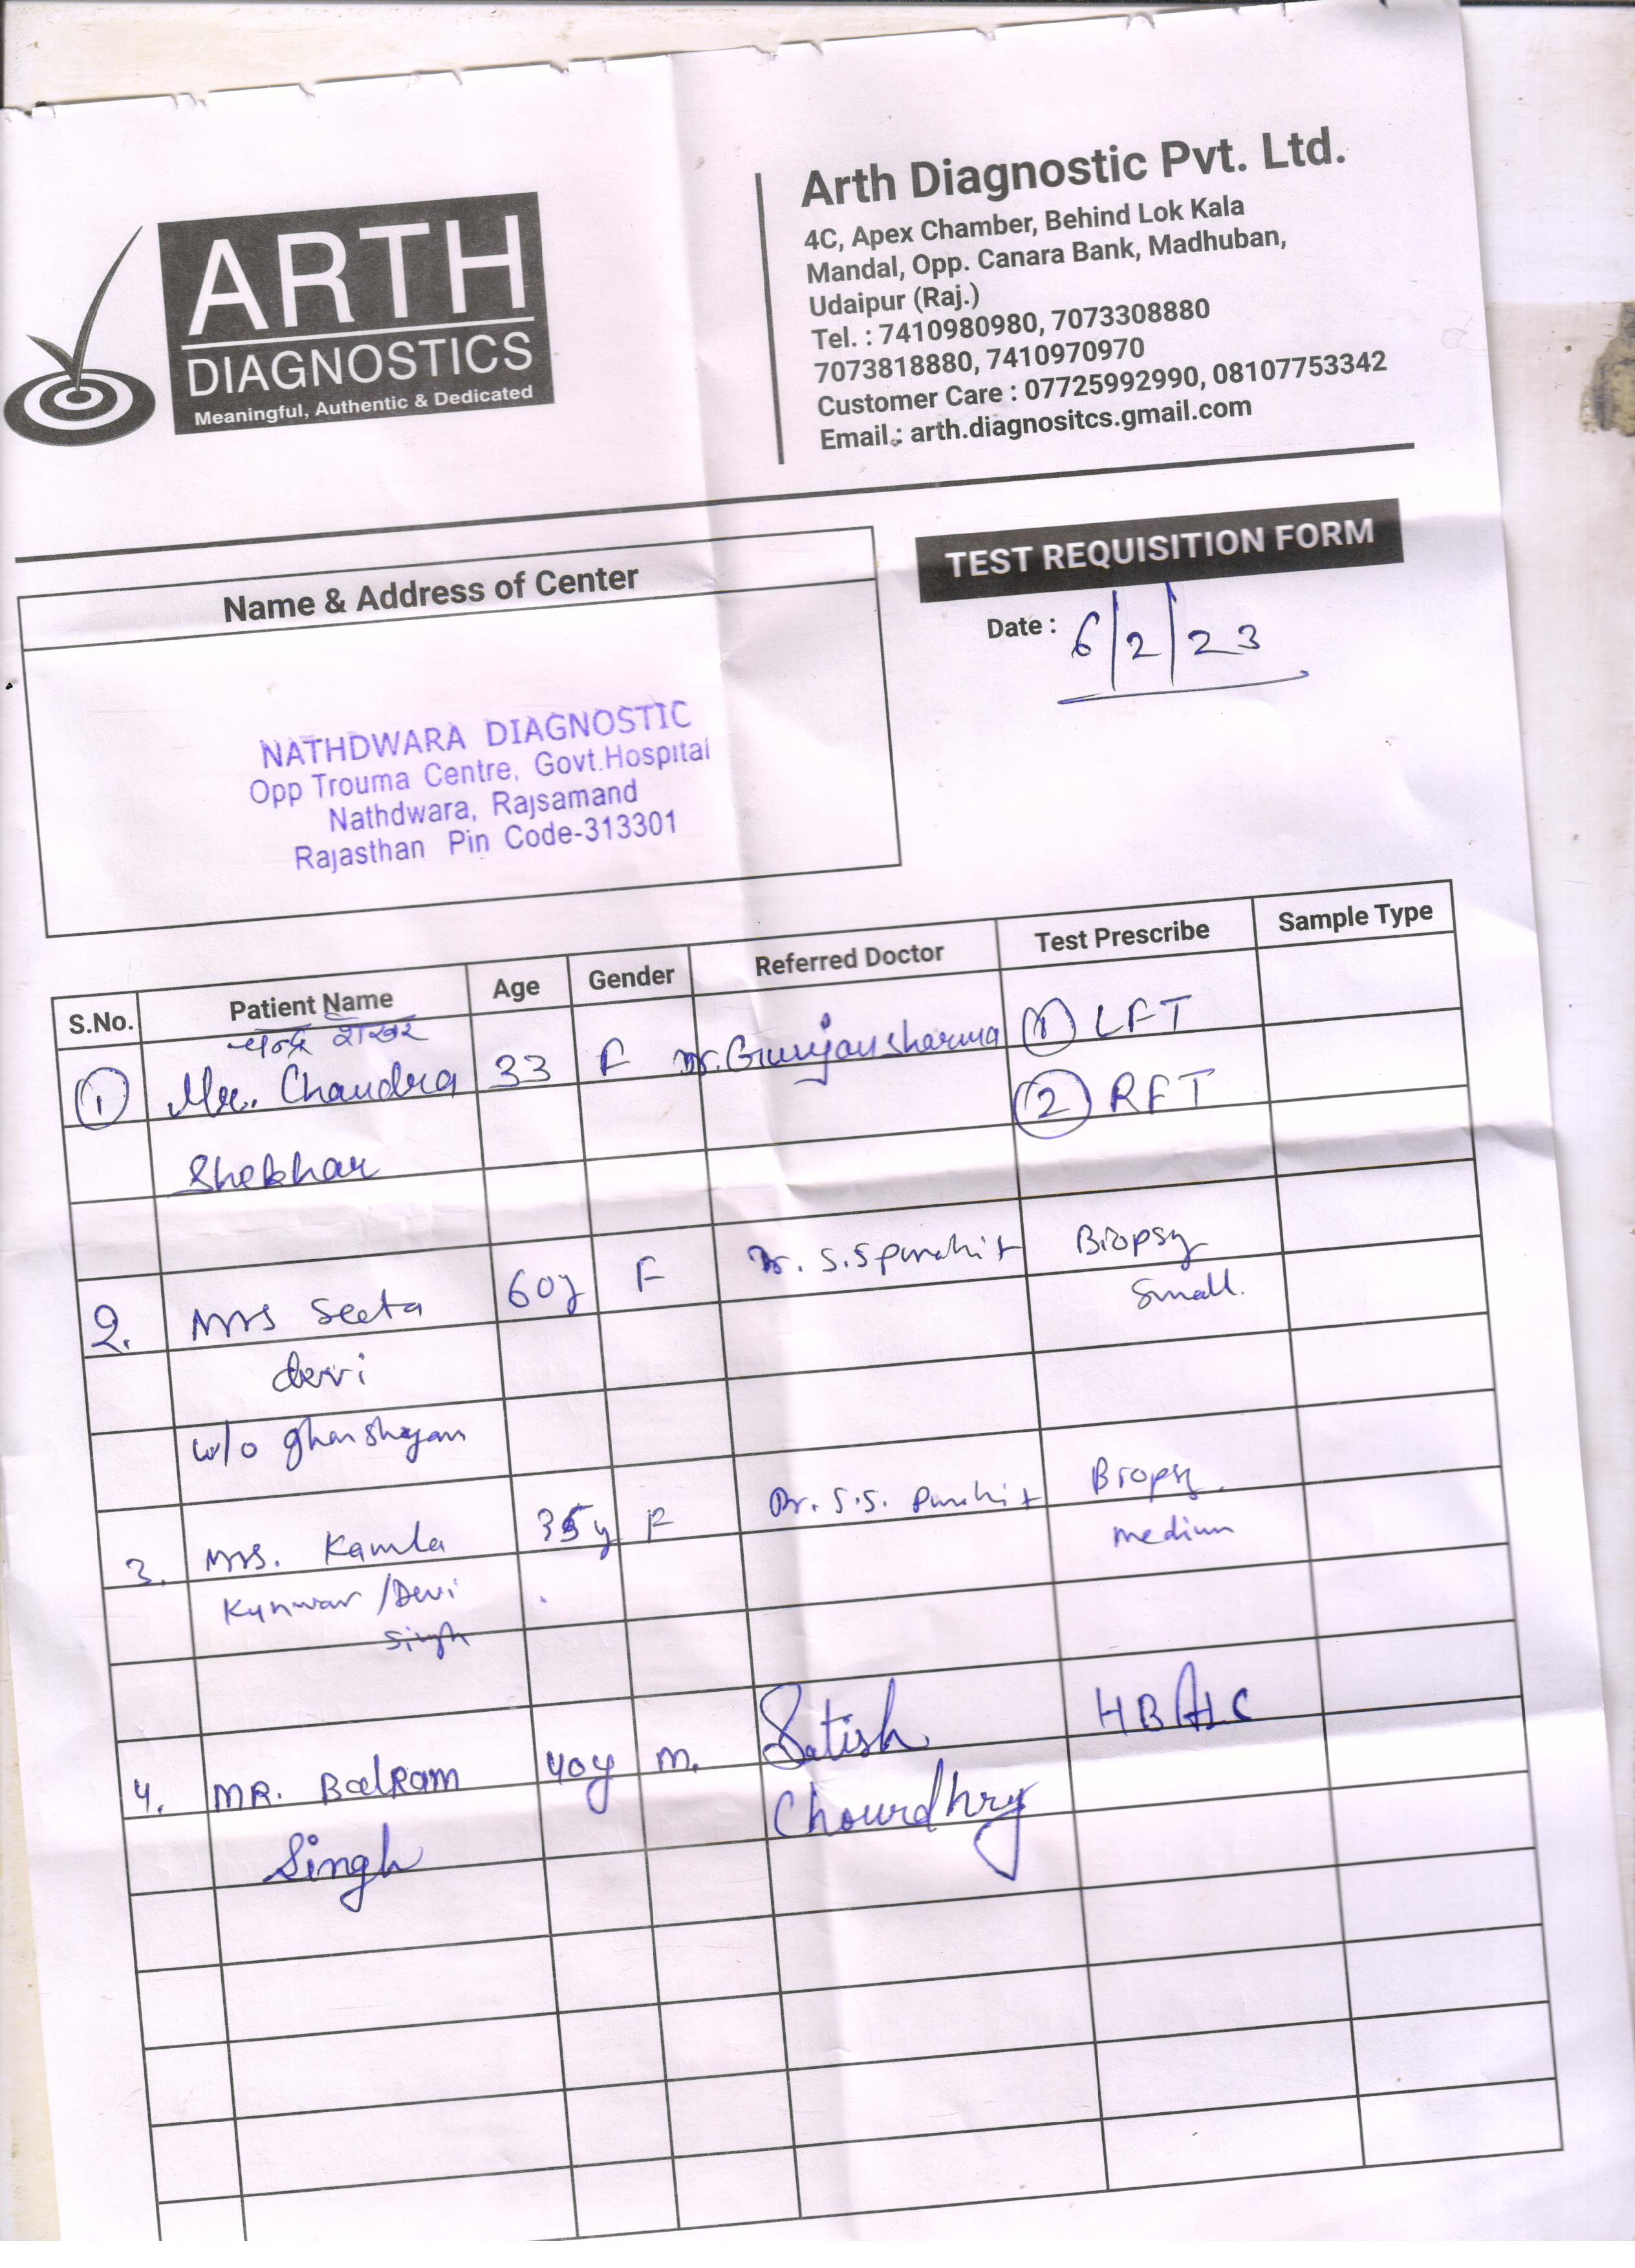 ARTH
DIAGNOSTICS
Meaningful, Authentic & Dedicated
Arth Diagnostic Pvt. Ltd.
4C, Apex Chamber, Behind Lok Kala
Mandal, Opp. Canara Bank, Madhuban,
Udaipur (Raj.)
Tel. : 7410980980, 7073308880
7073818880, 7410970970
Customer Care : 07725992990, 08107753342
Email : arth.diagnositcs.gmail.com
TEST REQUISITION FORM
Date : 6/2/23
Name & Address of Center
NATHDWARA DIAGNOSTIC
Opp Trouma Centre, Govt.Hospital
Nathdwara, Rajsamand
Rajasthan Pin Code-313301
S.No. Patient Name Age Gender Referred Doctor Test Prescribe Sample Type
चन्द्र शेखर
1 Mr. Chandra 33 F Dr. Gunjan sharma 1 LFT
2 RFT
Shekhar
2. Mrs Seeta 60y F Dr. S.S purohit Biopsy
Small.
devi
w/o ghanshyam
3. Mrs. Kamla 35y F Dr. S.S. Purohit Biopsy.
medium
Kunwar / Devi
Singh
4. MR. BalRam 40y M. Satish HBA1C
Singh Chowrdhry